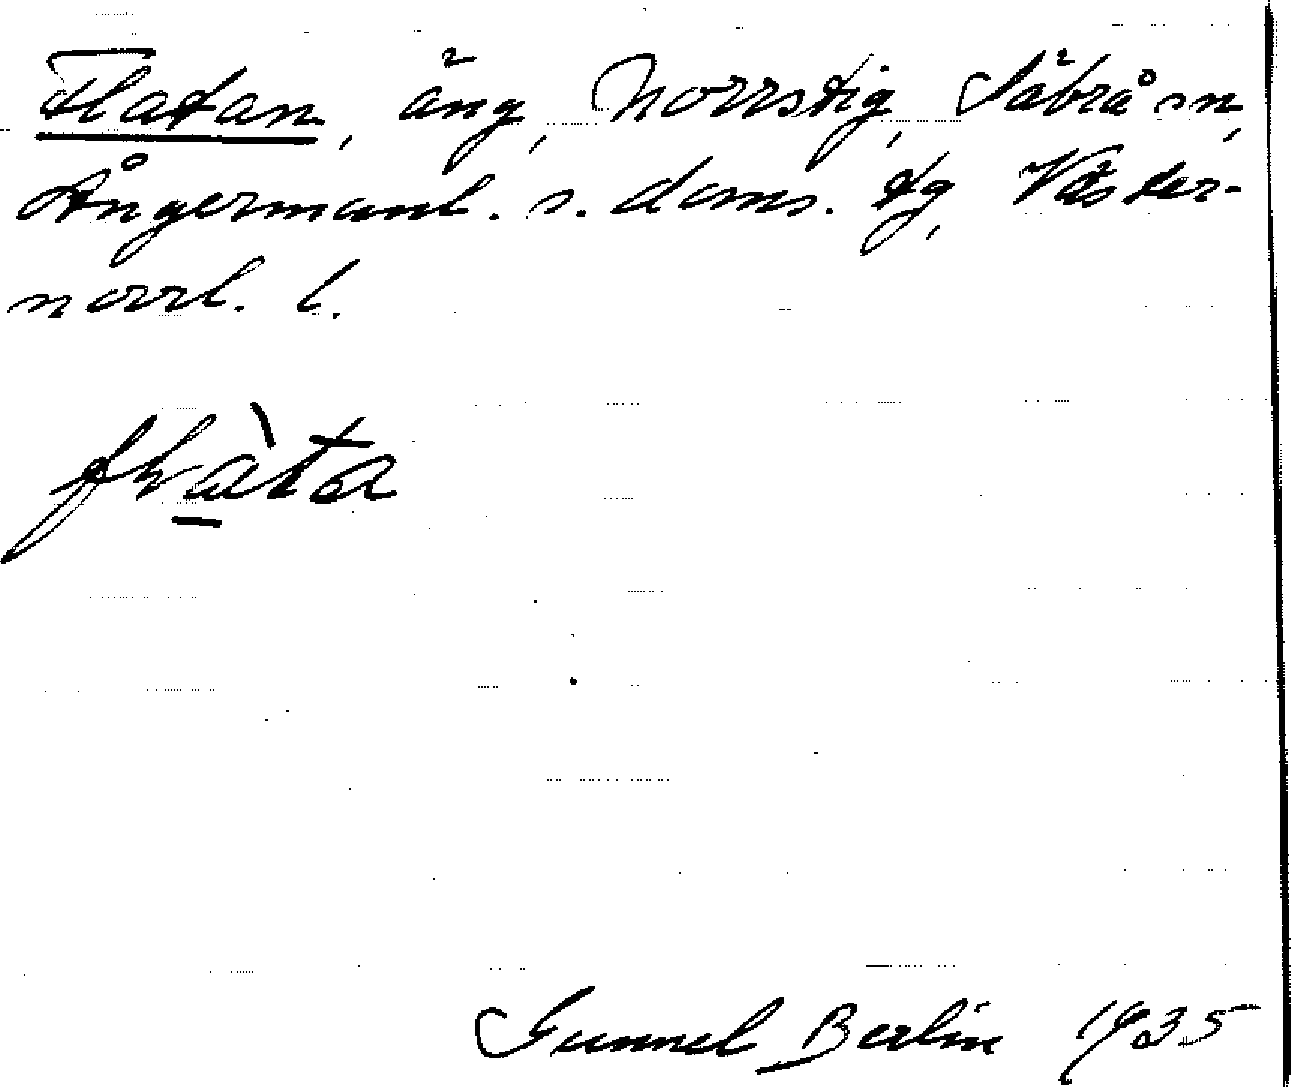 Flatan, äng, Norrstig, Säbrå sn,
Ångermanl. s. doms. tg, Väster-
norrl. l.
Gunnel Berlin 1935